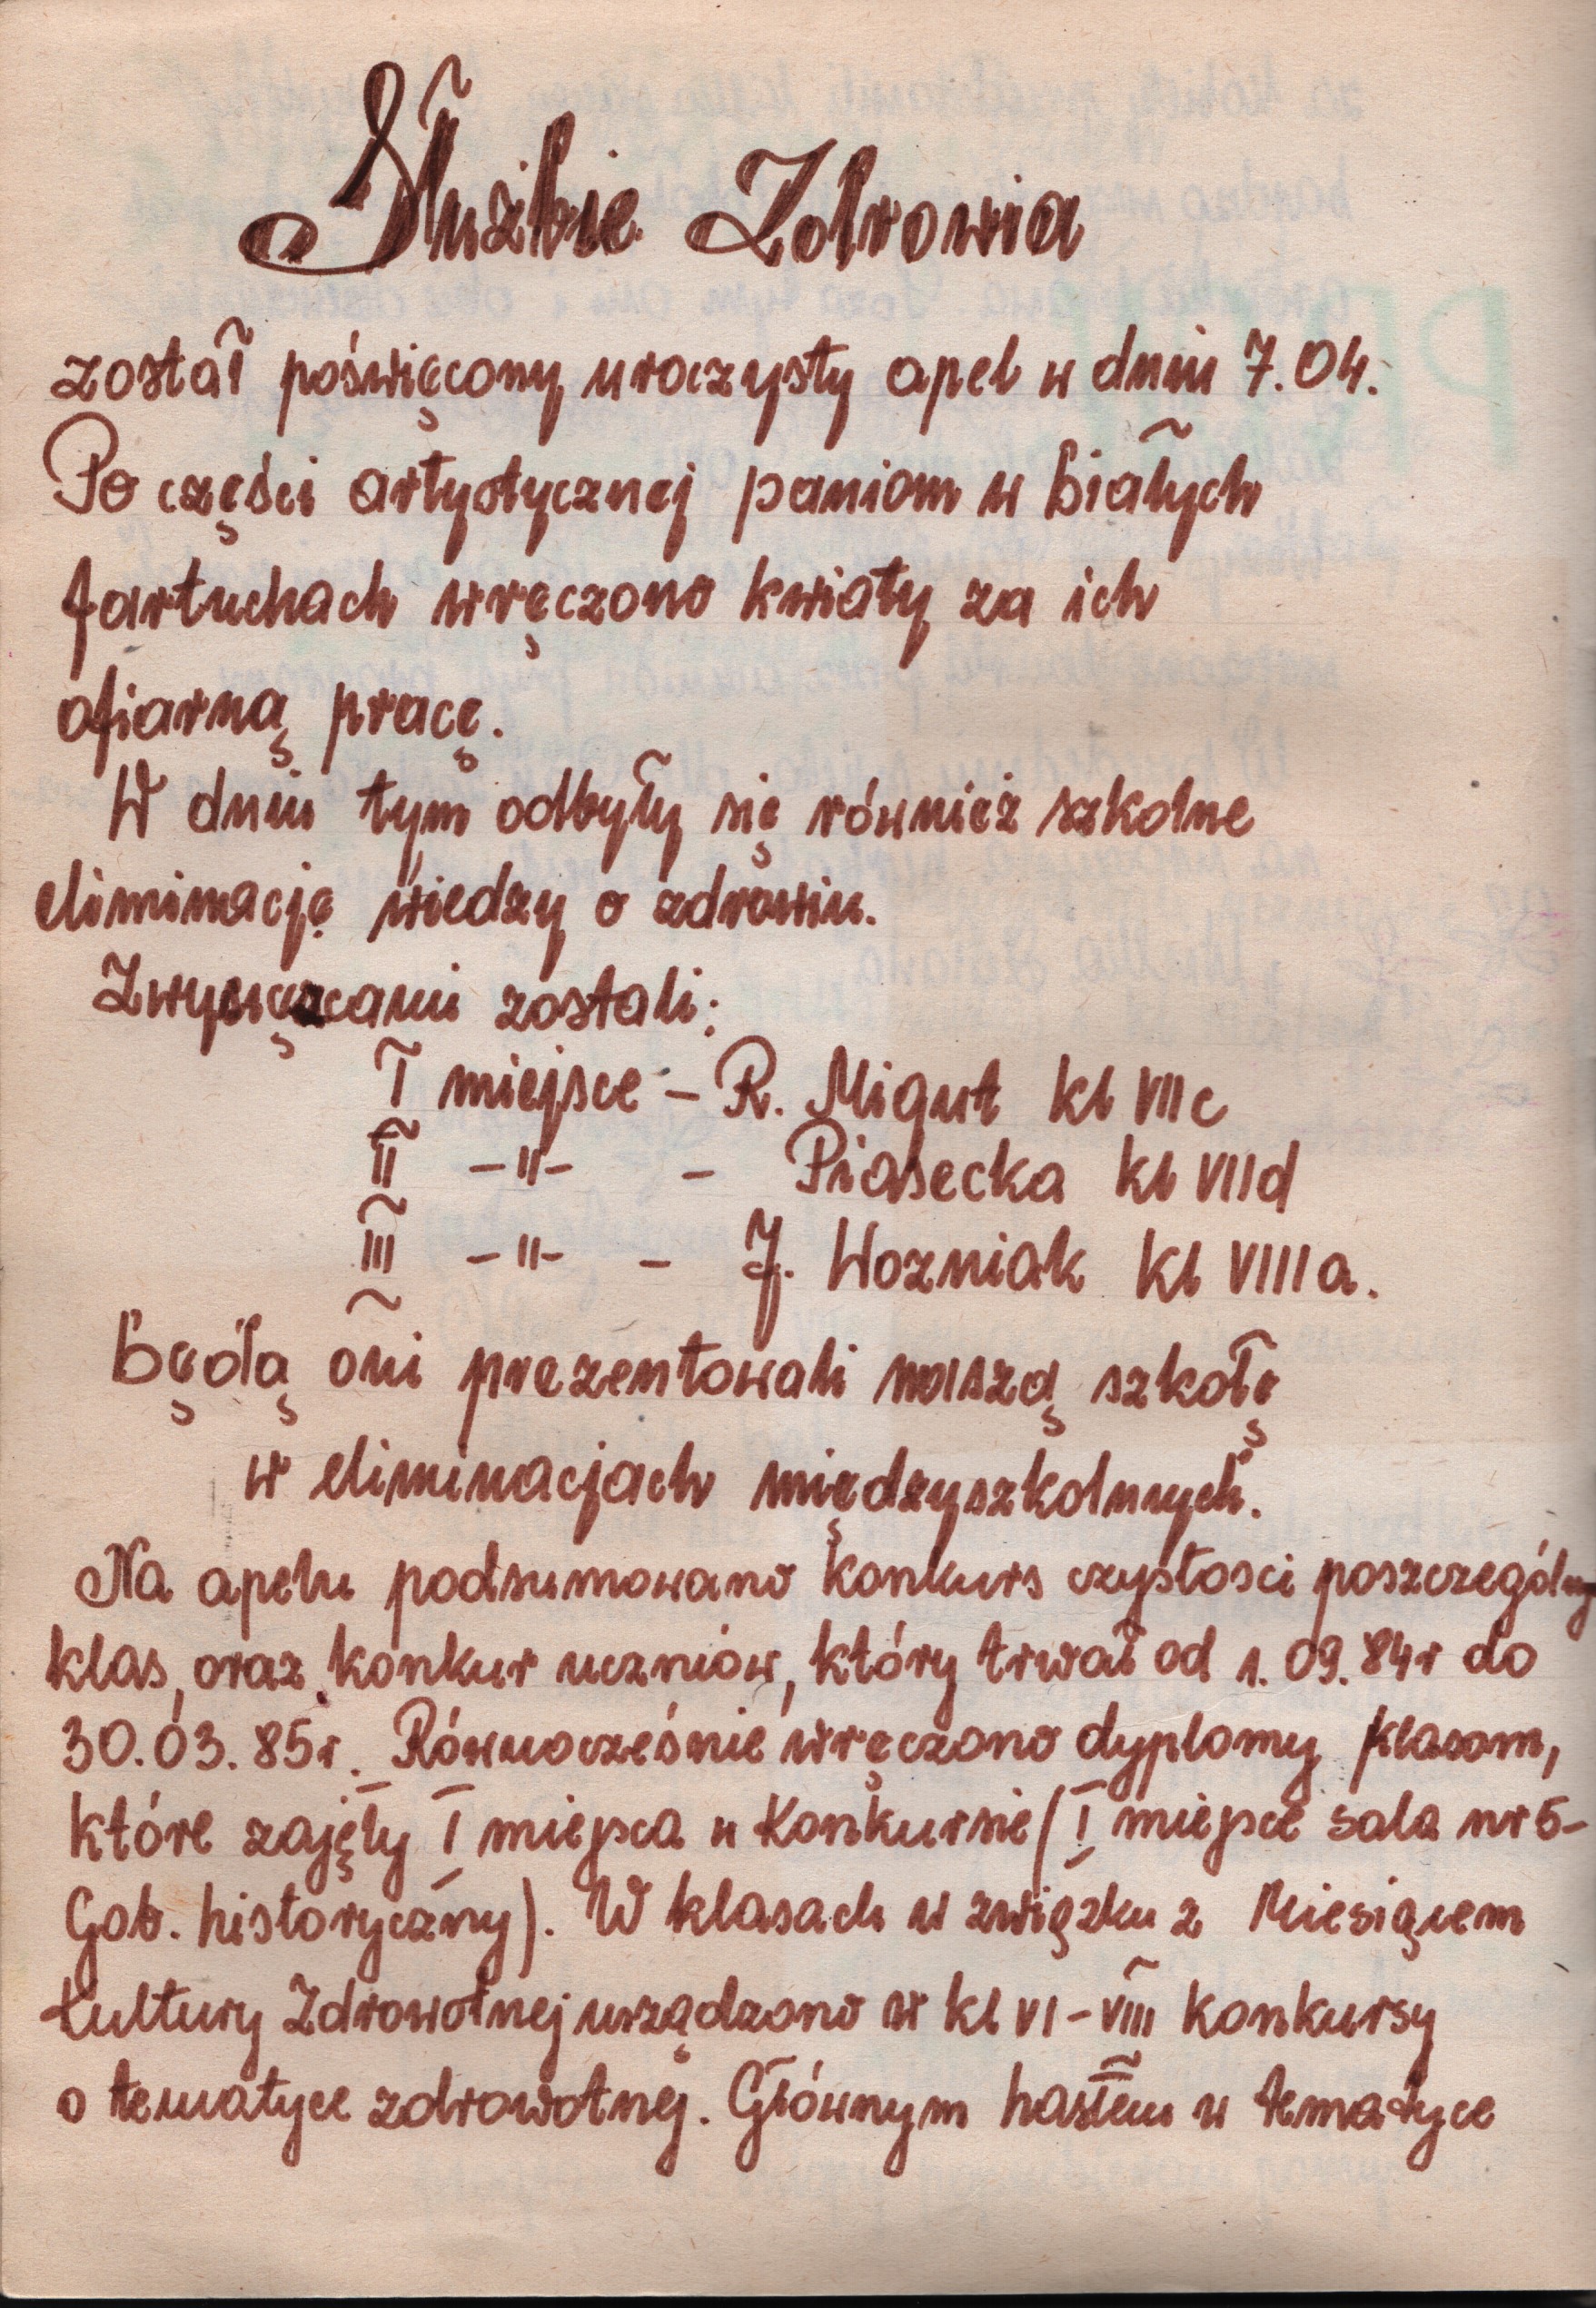 Służbie Zdrowia
został poświęcony uroczysty apel w dniu 7.04.
Po części artystycznej paniom w białych
fartuchach wręczono kwiaty za ich
ofiarną pracę.
W dniu tym odbyły się również szkolne
eliminację wiedzy o zdrowiu.
Zwycięzcami zostali:
I miejsce - R. Migut kl VII c
II -"- - Piasecka kl VII d
III -"- - J. Wozniak kl VIII a.
Będą oni prezentowali naszą szkołę
w eliminacjach międzyszkolnych.
Na apelu podsumowano konkurs czystosci poszczególny
klas, oraz konkur uczniów, który trwał od 1.09.84r do
30.03.85r. Równocześnie wręczono dyplomy klasom,
które zajęły I miejsca w Konkursie (I miejsce sala nr 5-
Gab. historyczny). W klasach w związku z Miesiącem
Kultury Zdrowotnej urządzono w kl VI - VIII konkursy
o tematyce zdrowotnej. Głównym hasłem w tematyce